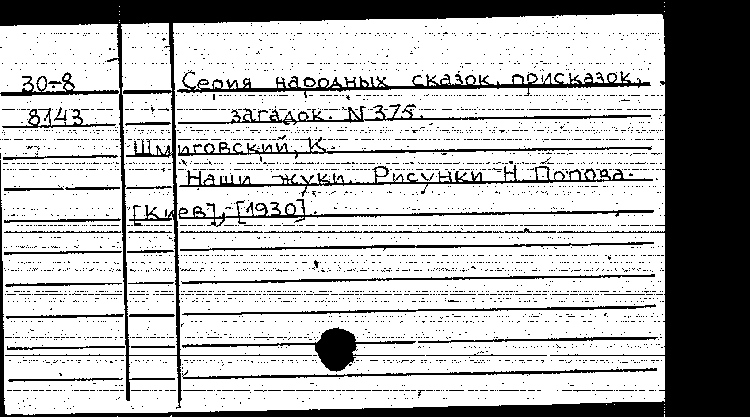 30-8 Серия народных сказок, присказок,
8143 загадок. N 375.
Шмиговский, К.
Наши жуки. Рисунки Н. Попова.
[Киев], [1930].